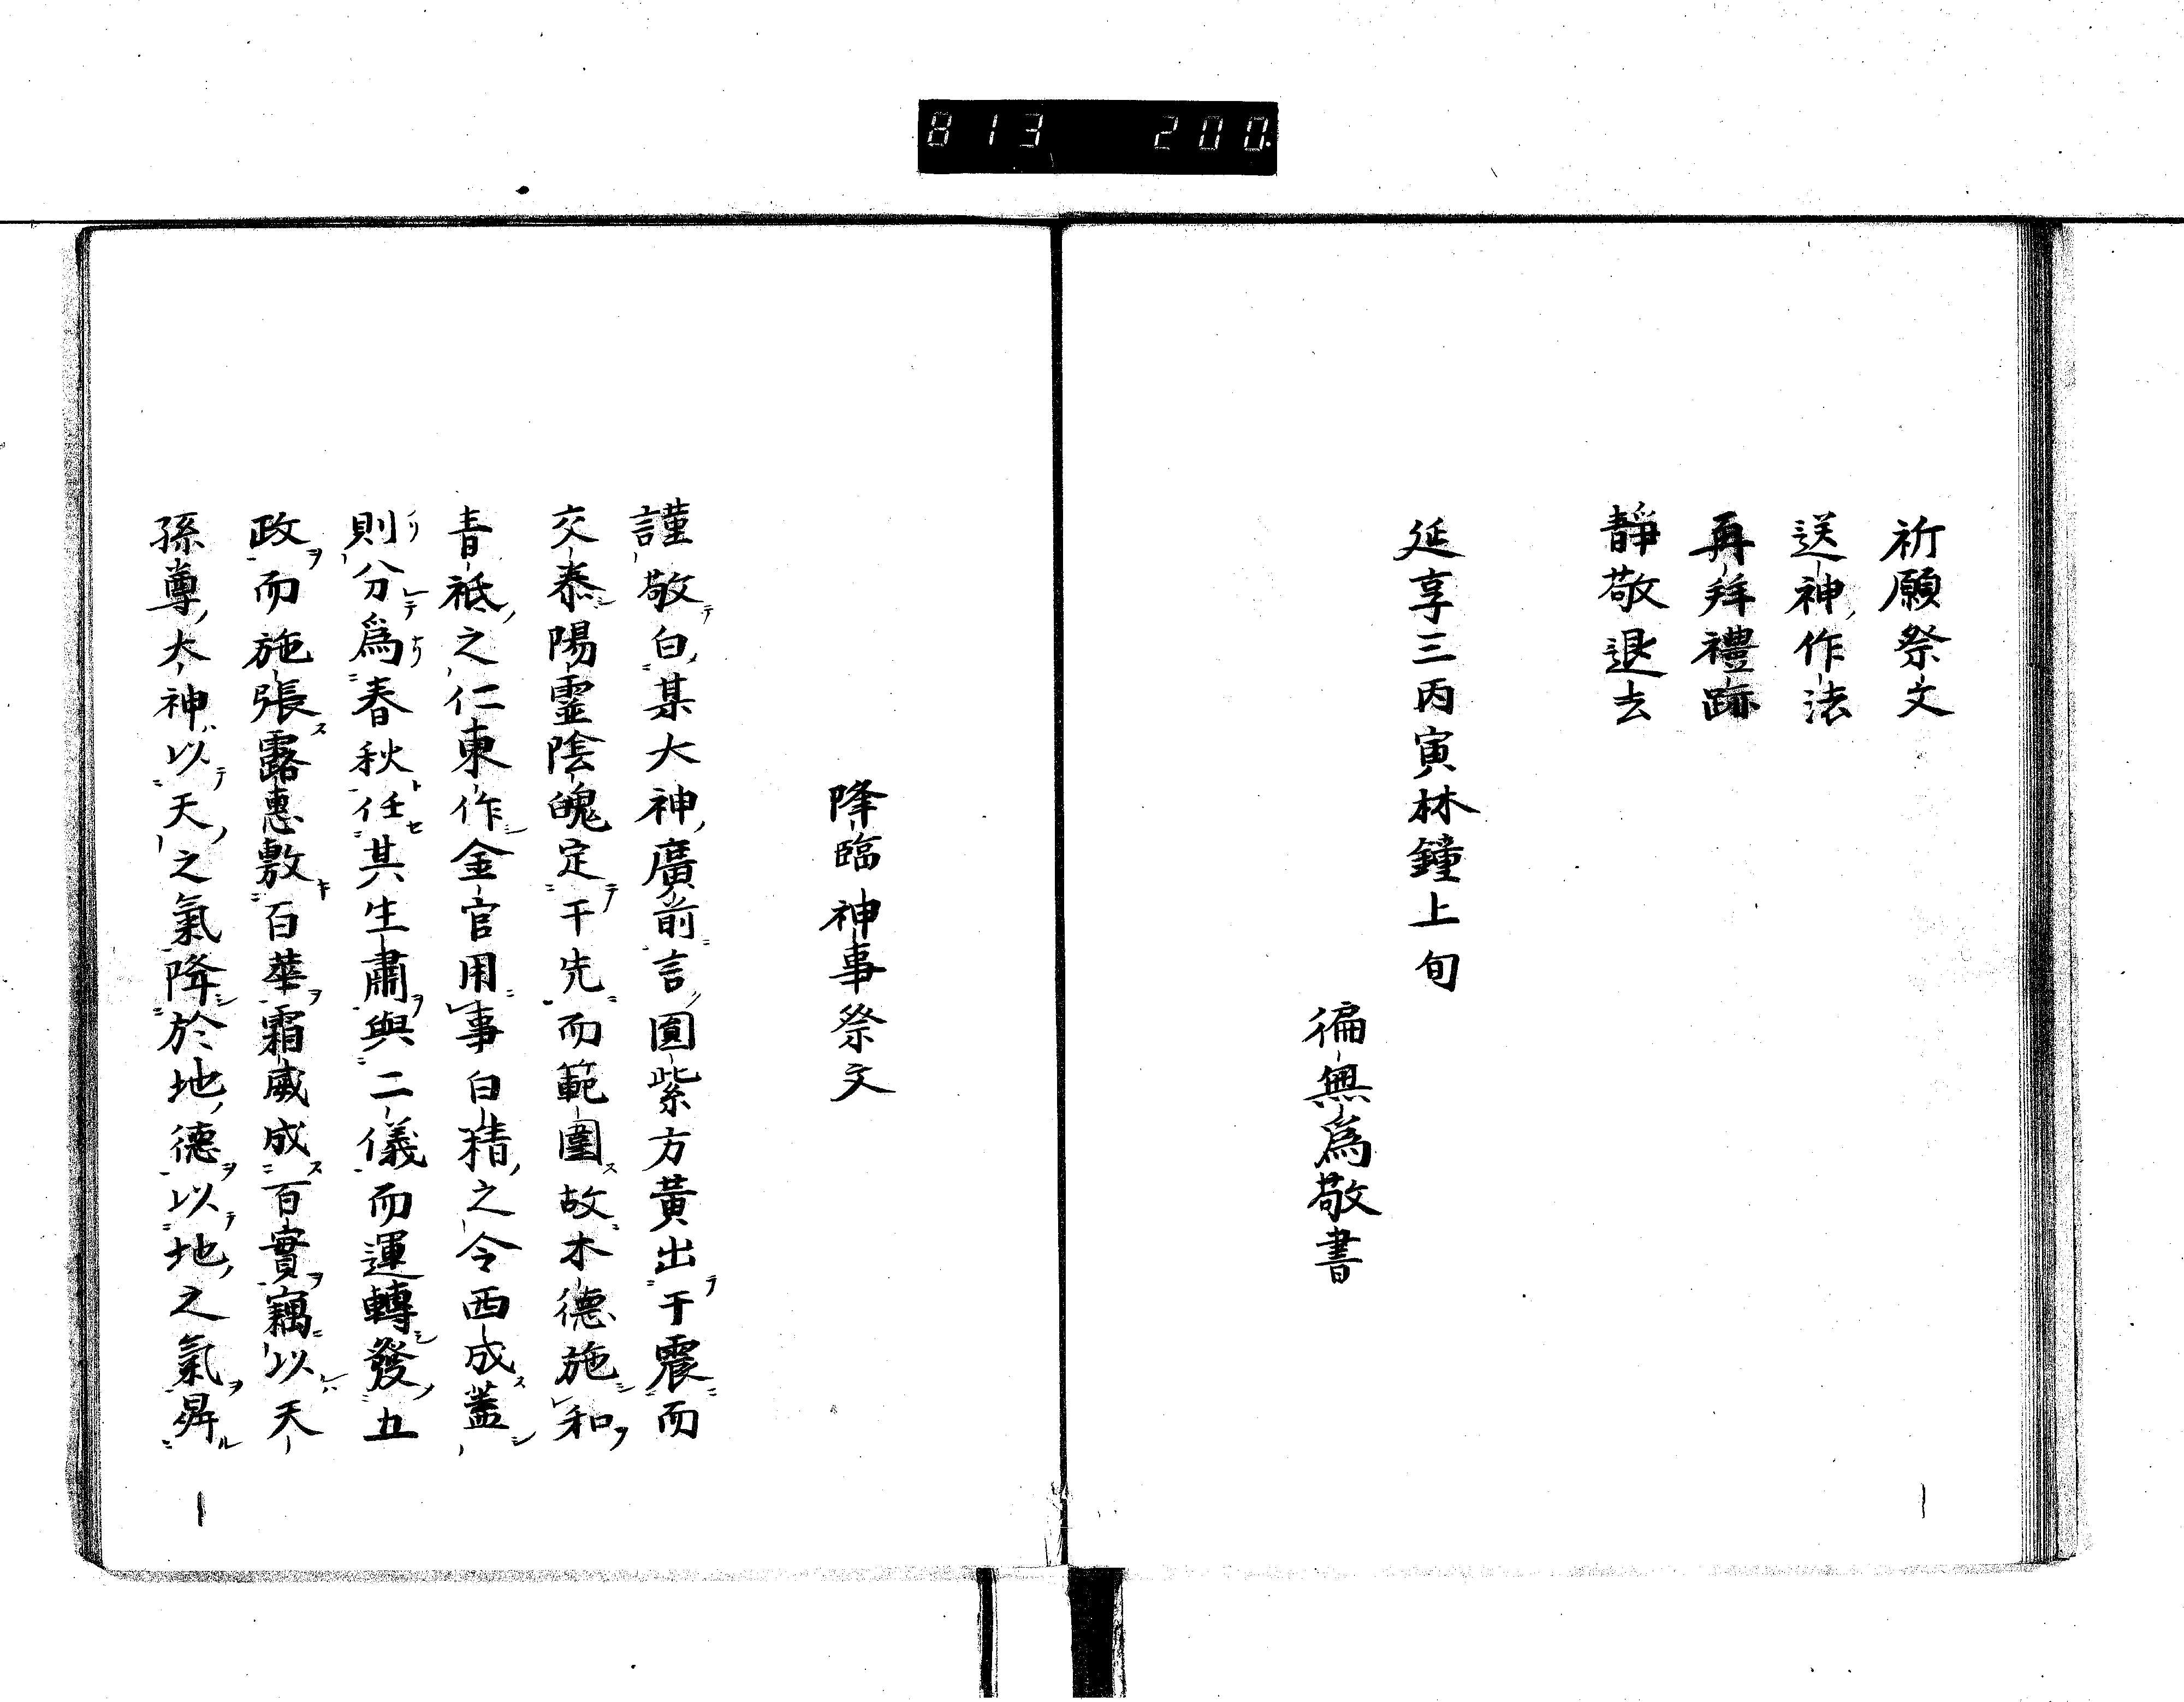 813 200.
祈願祭文
送神作法
再拜禮跡
靜敬退去
延享三丙寅林鐘上旬
徧無爲敬書
降臨神事祭文
謹敬白某大神廣前言圓紫方黃出于震而
交泰陽靈陰魄定于先而範圍故木德施和
青祗之仁東作金官用事白精之令西成蓋
則分爲春秋任其生肅與二儀而運轉發五
政而施張露惠敷百華霜威成百實竊以天
孫尊大神以天之氣降於地德以地之氣昇